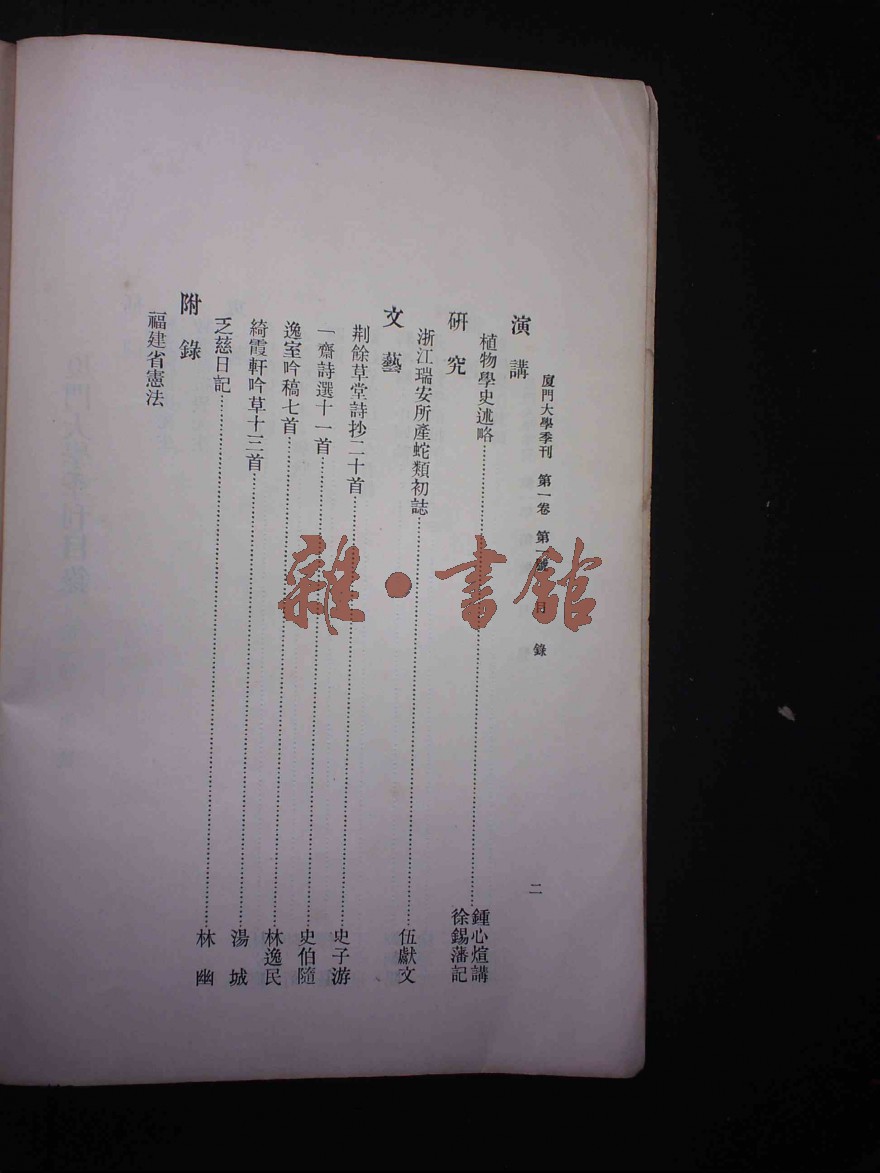 廈門大學季刊 第一卷 第一號 目錄 二
演講
植物學史述略 鍾心煊講 徐錫藩記
研究
浙江瑞安所產蛇類初誌 伍獻文
文藝
荆餘草堂詩抄二十首 史子游
一齋詩選十一首 史伯隨
逸室吟稿七首 林逸民
綺霞軒吟草十三首 湯城
乏慈日記 林幽
附錄
福建省憲法
雜·書館